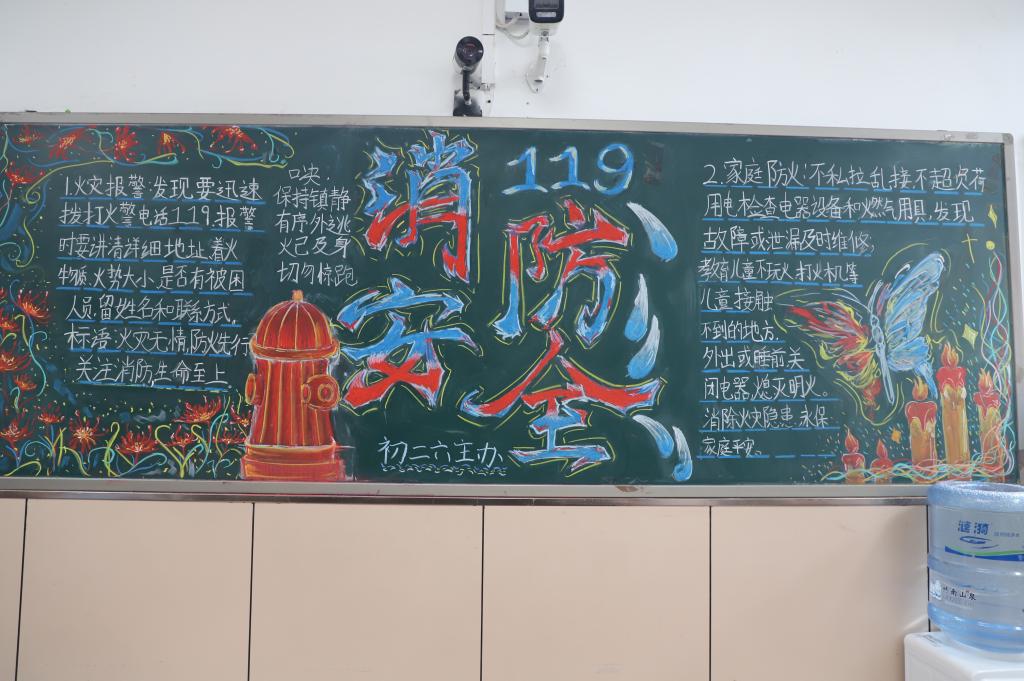 1.火灾报警:发现要迅速
拨打火警电话119,报警
时要讲清详细地址,着火
物质,火势大小,是否有被困
人员,留姓名和联系方式,
标语:火灾无情,防火先行
关注消防,生命至上
口诀:
保持镇静
有序外逃
火已及身
切勿惊跑
119
消防
安全
初二六主办
2.家庭防火:不私拉乱接,不超负荷
用电,检查电器设备和燃气用具,发现
故障或泄漏及时维修;
教育儿童不玩火,打火机等
儿童接触
不到的地方.
外出或睡前关
闭电器,熄灭明火。
消除火灾隐患,永保
家庭平安。
涟漪
岭南山泉